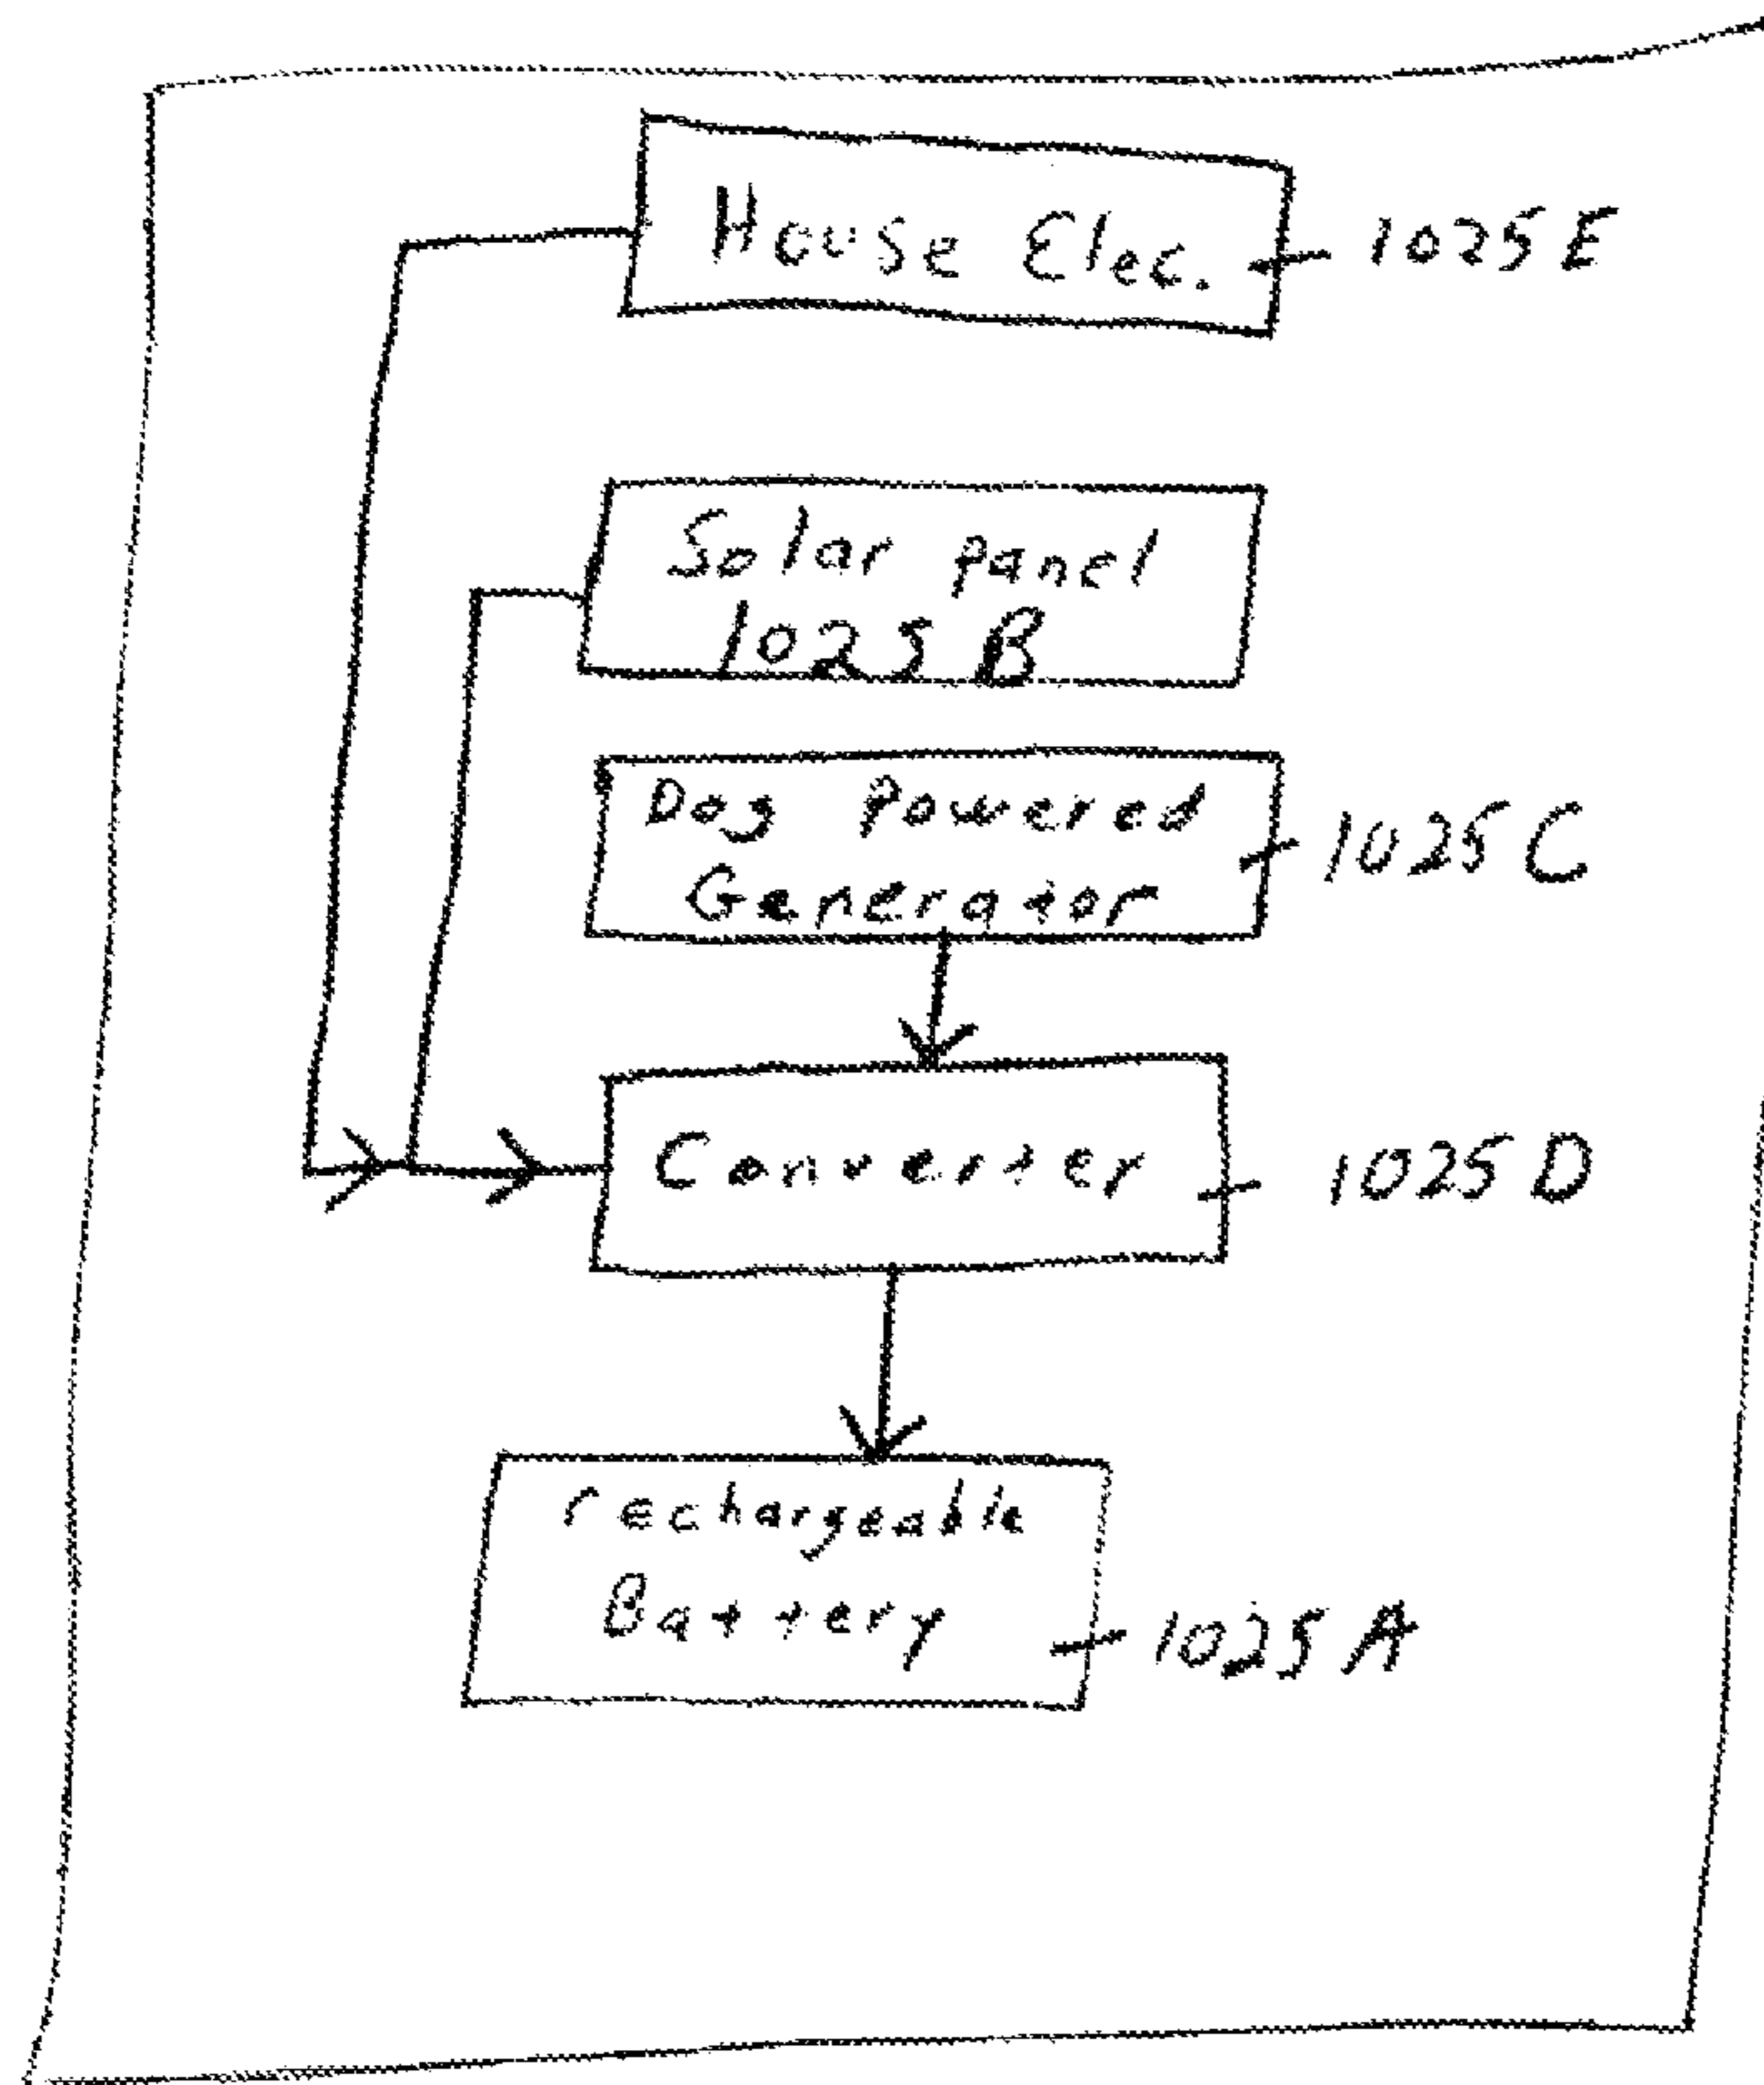 House Elec. 1025E
Solar panel
1025B
Dog Powered
Generator
1025C
Converter 1025D
rechargeable
Battery
1025A